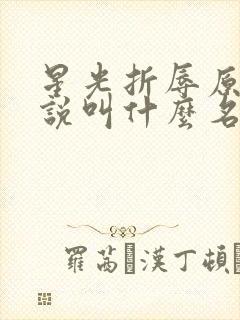 星光折辱原
說叫什麼名
羅茜·漢丁頓